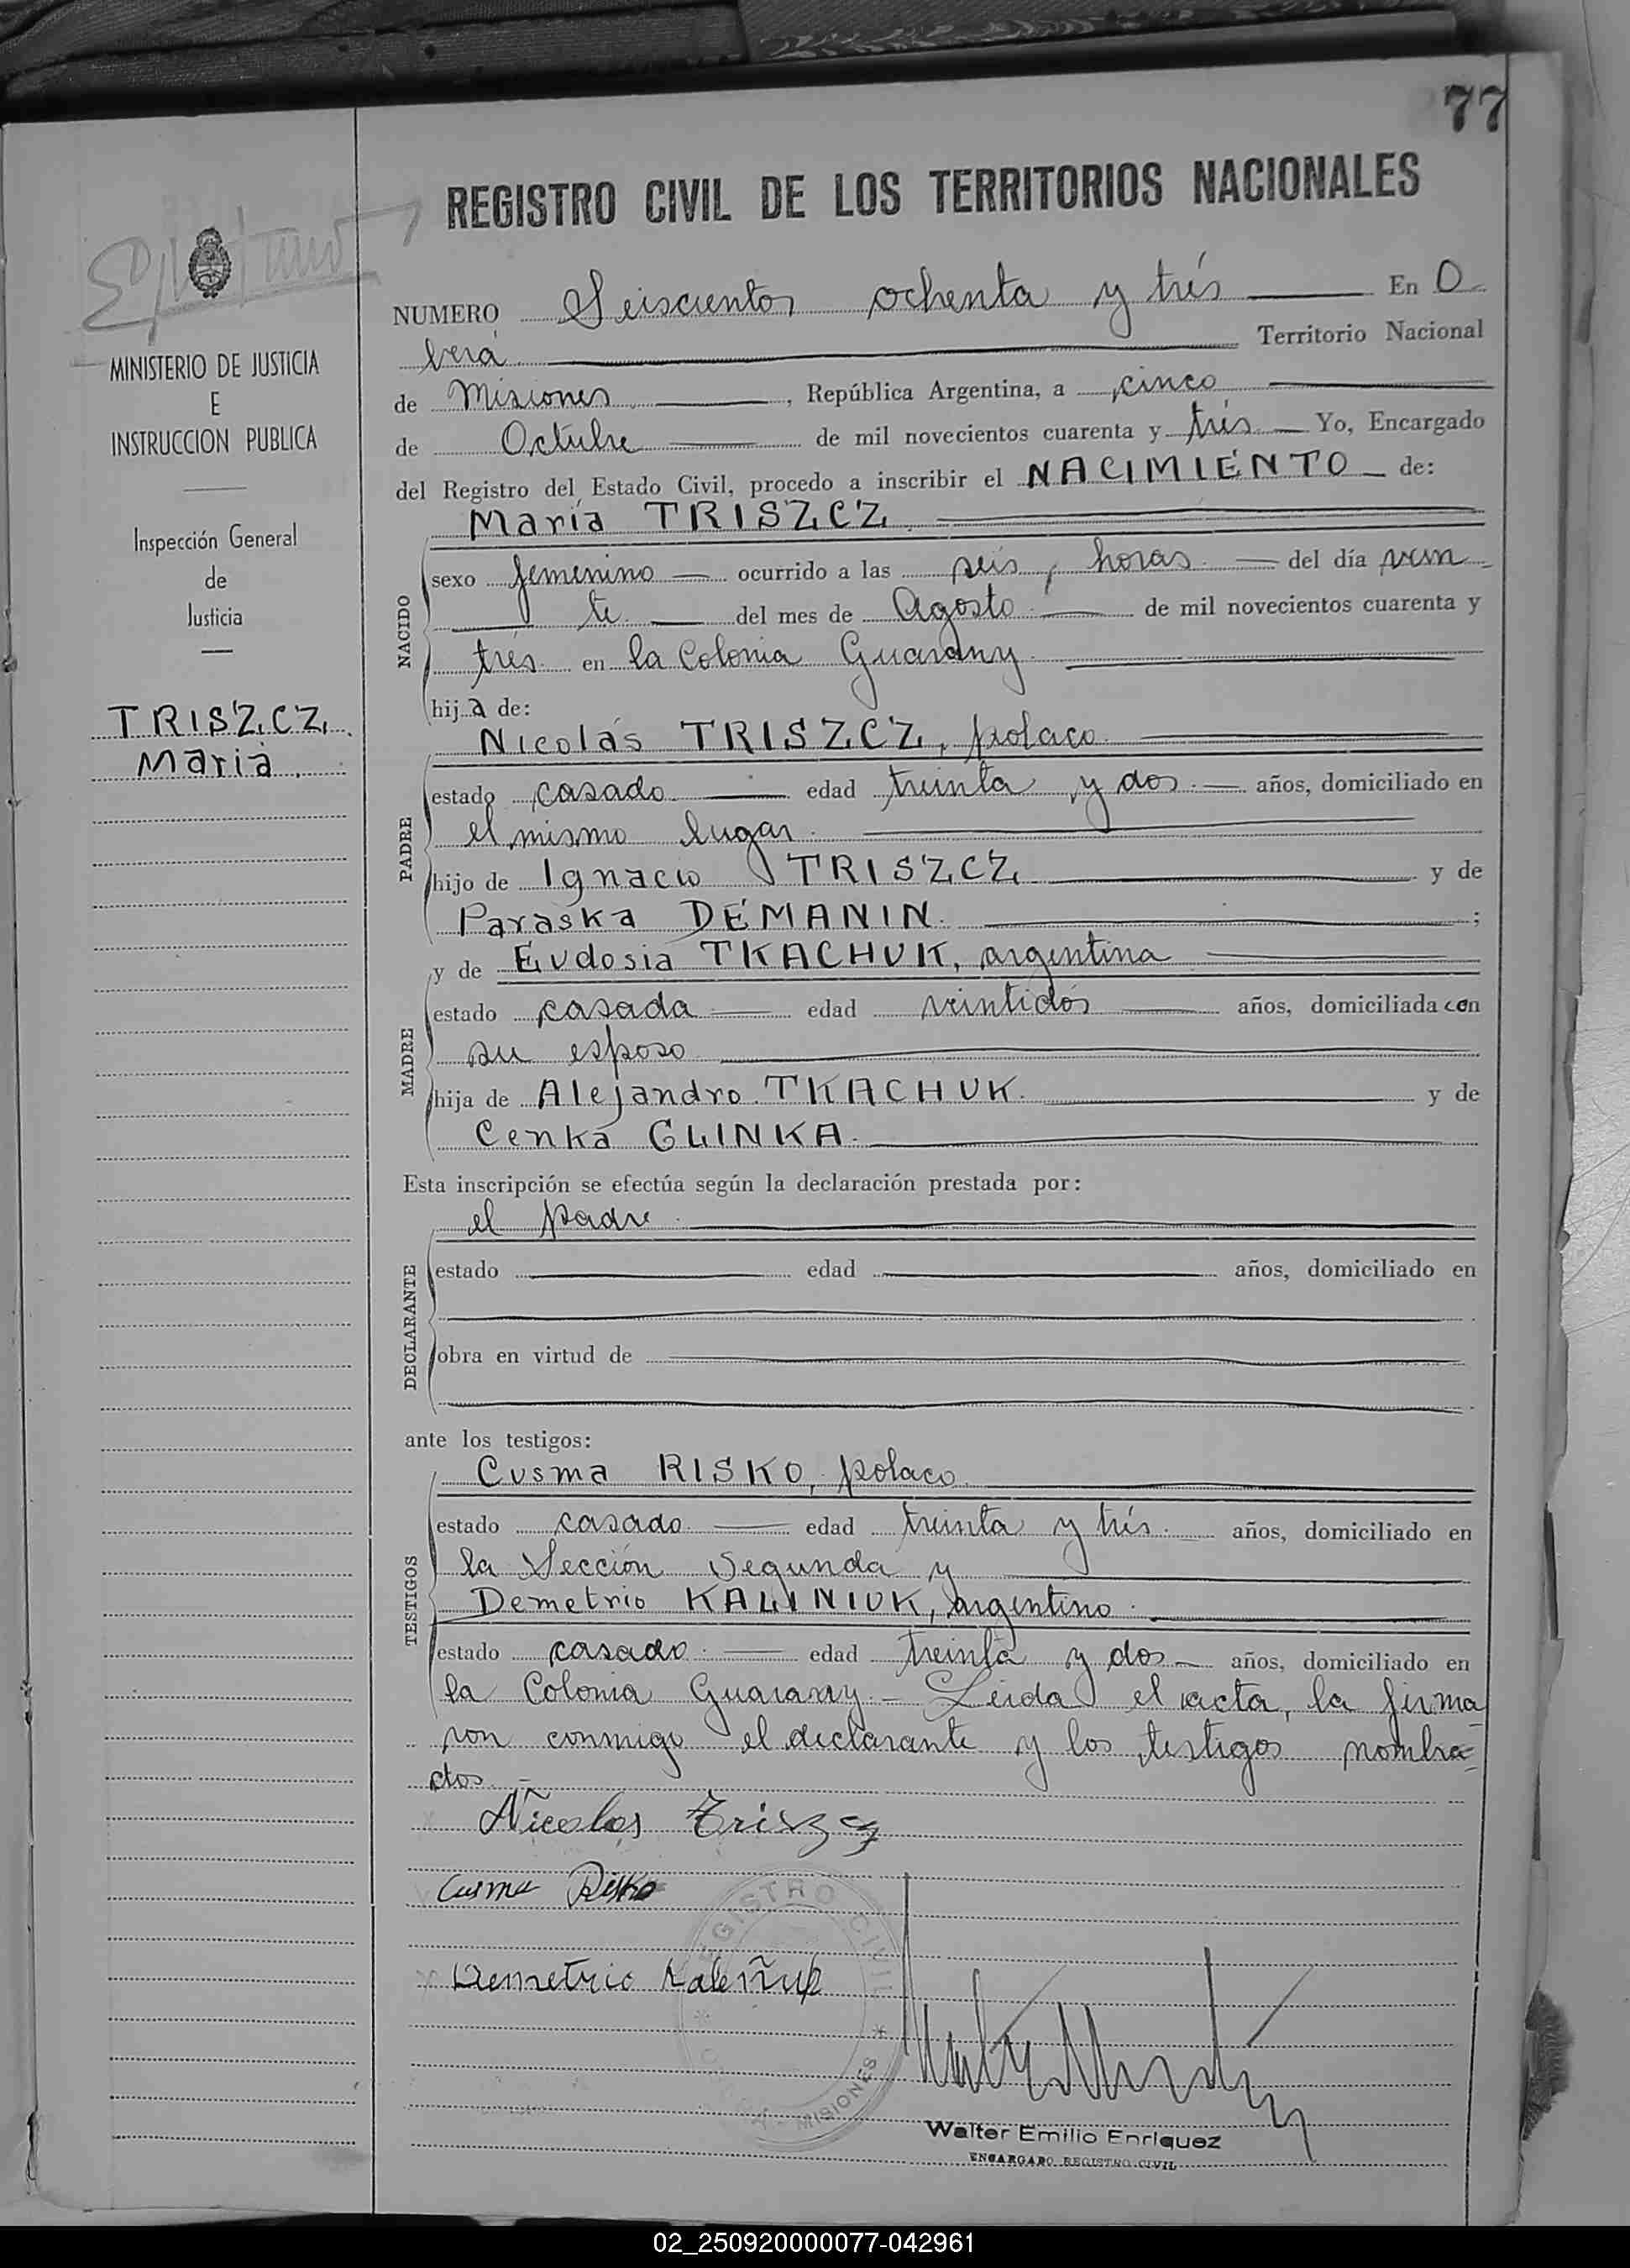 77
REGISTRO CIVIL DE LOS TERRITORIOS NACIONALES
NUMERO Seiscientos ochenta y trés En O
berá Territorio Nacional
de Misiones, República Argentina, a cinco
de Octubre de mil novecientos cuarenta y trés Yo, Encargado
del Registro del Estado Civil, procedo a inscribir el NACIMIENTO de:
María TRISZCZ.
NACIDO
sexo femenino ocurrido a las seis, horas. del día vein=
te del mes de Agosto. de mil novecientos cuarenta y
trés en la Colonia Guarany.
hija de:
Nicolás TRISZCZ, polaco.
PADRE
estado casado. edad treinta y dos. años, domiciliado en
el mismo lugar.
hijo de Ignacio TRISZCZ. y de
Paraska DEMANIN. ;
MADRE
y de Eudosia TKACHUK, argentina
estado casada edad veintidós años, domiciliada con
su esposo
hija de Alejandro TKACHUK. y de
Cenka GLINKA.
Esta inscripción se efectúa según la declaración prestada por:
el padre.
DECLARANTE
estado edad años, domiciliado en
obra en virtud de
ante los testigos:
Cusma RISKO, polaco
TESTIGOS
estado casado. edad treinta y trés. años, domiciliado en
la Sección Segunda y
Demetrio KALINIUK, argentino.
estado casado. edad treinta y dos años, domiciliado en
la Colonia Guarany.- Leida el acta, la firma
ron conmigo el declarante y los testigos nombra=
dos.-
Nicolas Triszcz
Cusma Risko
Demetrio Kaleñuk
REGISTRO CIVIL
MISIONES
Walter Emilio Enriquez
ENCARGADO REGISTRO CIVIL
MINISTERIO DE JUSTICIA
E
INSTRUCCION PUBLICA
Inspección General
de
Justicia
TRISZCZ,
María.
02_250920000077-042961